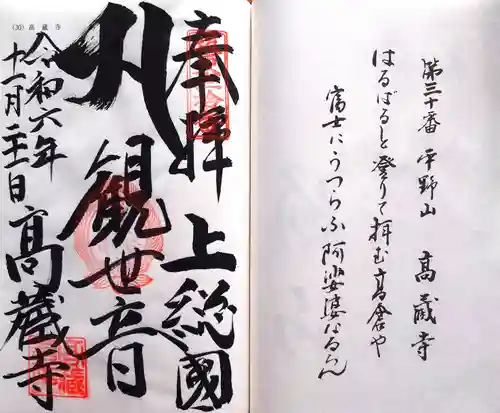 (30) 高蔵寺
奉拝 上総國
観世音
髙蔵寺
令和六年
十一月二十二日
第三十番 平野山 高蔵寺
はるばると登りて拝む高倉や
富士にうつらふ阿娑婆なるらん